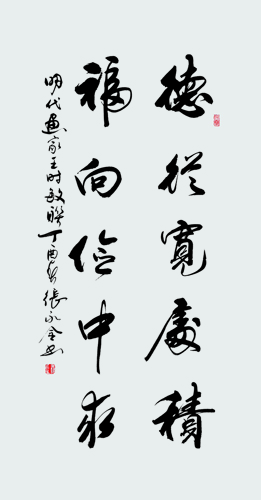 德從寬處積
福向儉中求
明代畫家王时敏聯丁酉年張永全書